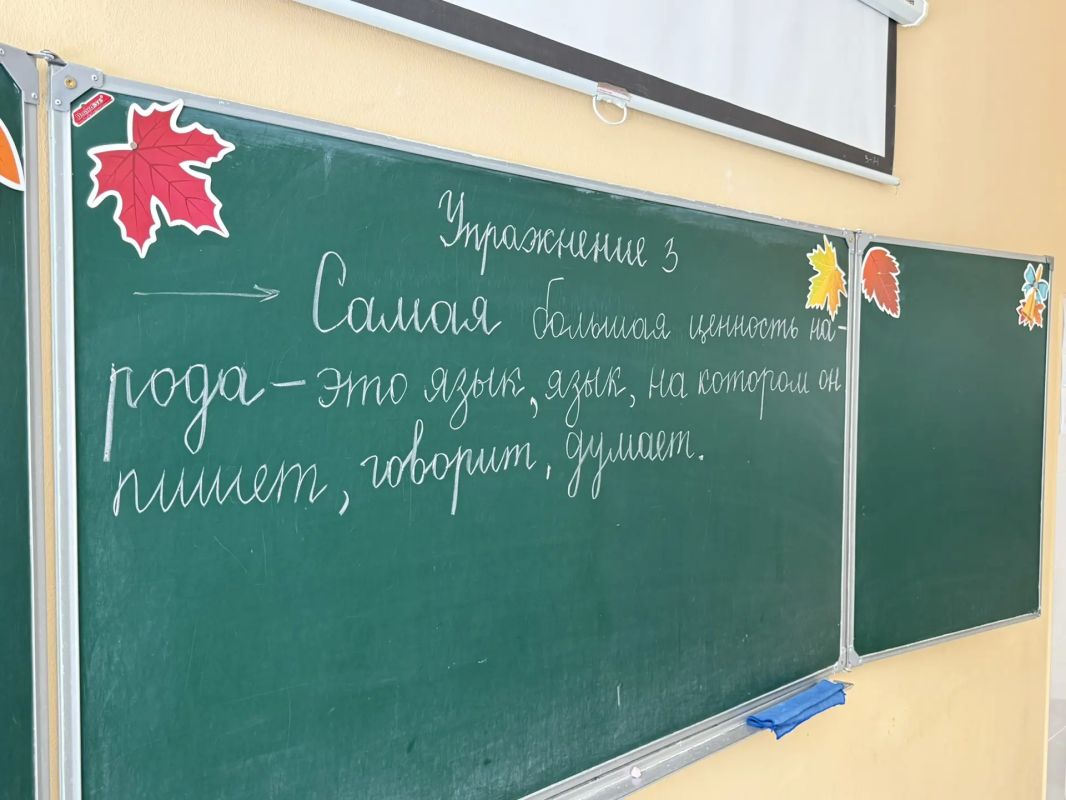 Упражнение 3
Самая большая ценность на-
рода – это язык, язык, на котором он
пишет, говорит, думает.